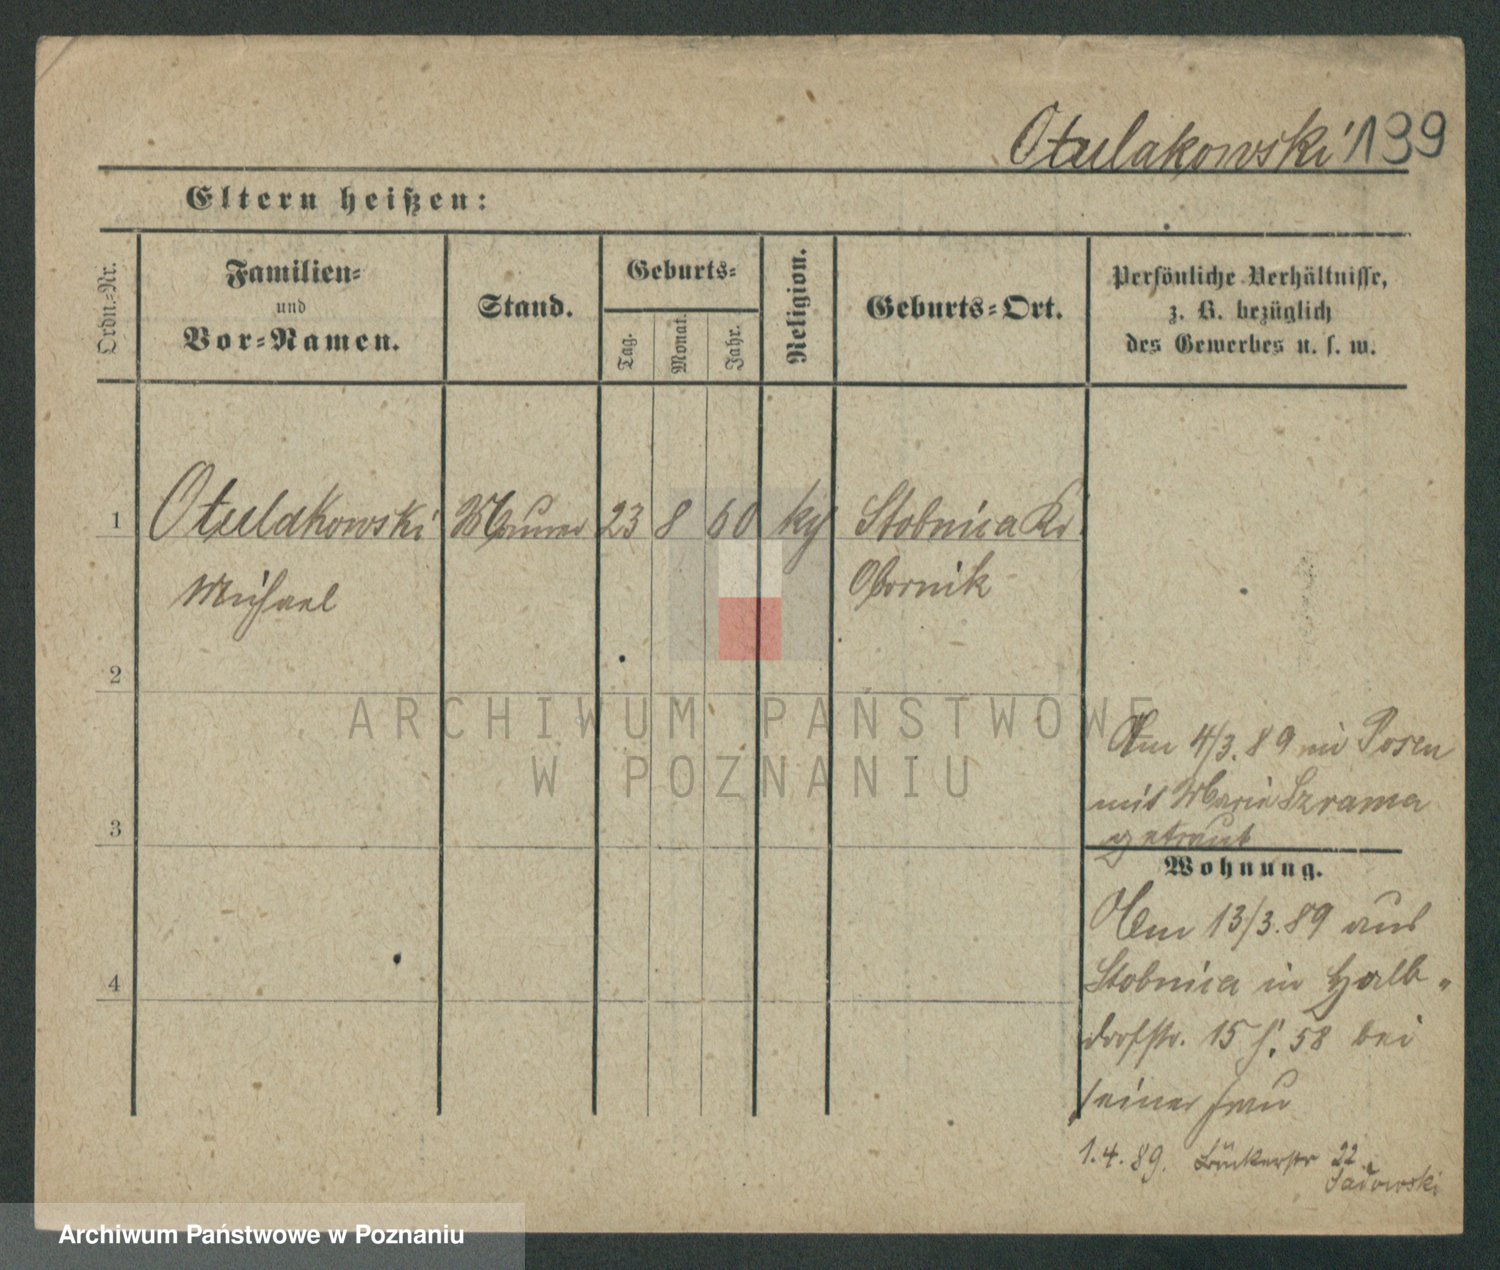 Otulakowski 139
Eltern heißen:
Ordn.-Nr.
Familien-
und
Vor-Namen.
Stand.
Geburts-
Tag.
Monat.
Jahr.
Religion.
Geburts-Ort.
Persönliche Verhältnisse,
z. B. bezüglich
des Gewerbes u. s. w.
1 Otulakowski Maurer 23 8 60 kg Stobnica Kr
Michael Obornik
2
3
4
Am 4/3. 89 in Posen
mit Marie Szrama
getraut
Wohnung.
Am 13/3. 89 aus
Stobnica in Halb-
dorfstr. 15 f. 58 bei
seiner Frau
1. 4. 89. Bäckerstr 22
ARCHIWUM PAŃSTWOWE
W POZNANIU
Archiwum Państwowe w Poznaniu